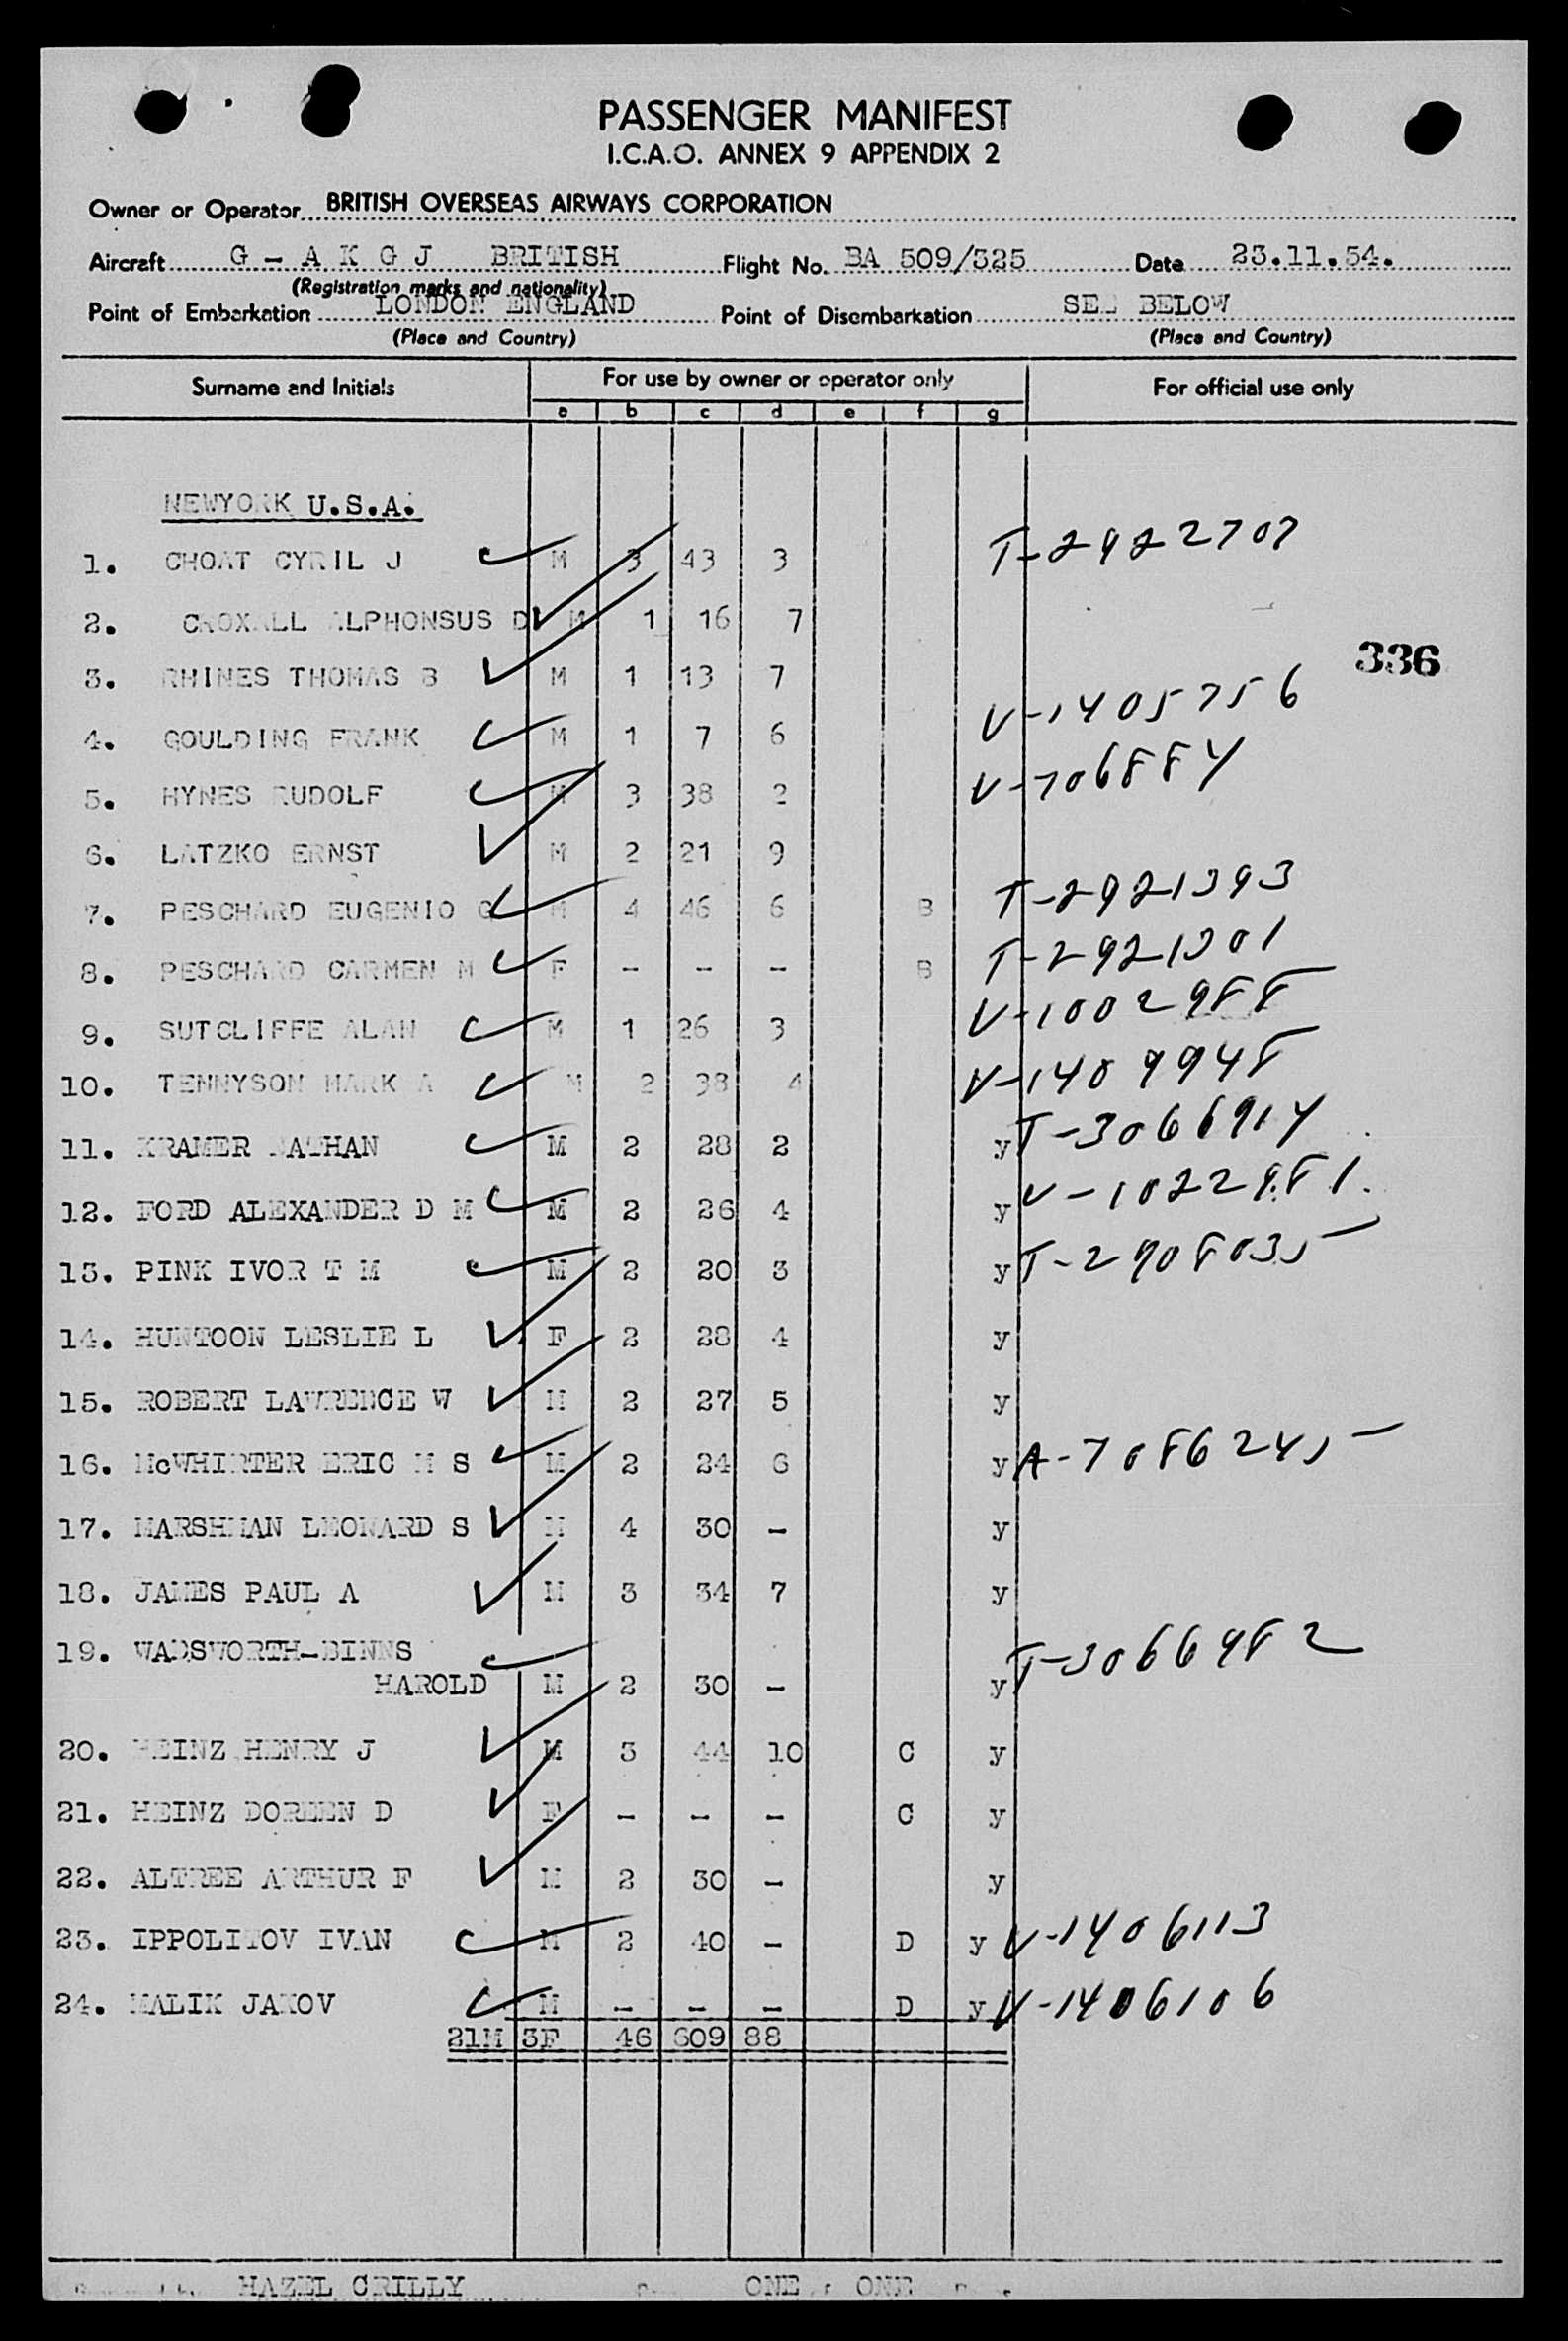 PASSENGER MANIFEST
I.C.A.O. ANNEX 9 APPENDIX 2
Owner or Operator BRITISH OVERSEAS AIRWAYS CORPORATION
Aircraft G - A K G J BRITISH Flight No. BA 509/325 Date 23.11.54.
(Registration marks and nationality)
Point of Embarkation LONDON ENGLAND Point of Disembarkation SEE BELOW
(Place and Country) (Place and Country)
Surname and Initials For use by owner or operator only For official use only
a b c d e f g
NEWYORK U.S.A.
1. CHOAT CYRIL J M 3 43 3 T-2922707
2. CROXALL ALPHONSUS D M 1 16 7
336
3. RHINES THOMAS B M 1 13 7
4. GOULDING FRANK M 1 7 6 V-1405756
5. HYNES RUDOLF M 3 38 2 V-706884
6. LATZKO ERNST M 2 21 9
7. PESCHARD EUGENIO G M 4 46 6 B T-2921393
8. PESCHARD CARMEN M F - - - B T-2921301
9. SUTCLIFFE ALAN M 1 26 3 V-1002988
10. TENNYSON MARK A M 2 38 4 V-1409948
11. KRAMER NATHAN M 2 28 2 y T-3066914
12. FORD ALEXANDER D M M 2 26 4 y V-1022981
13. PINK IVOR T M M 2 20 3 y T-2908035
14. HUNTOON LESLIE L F 2 28 4 y
15. ROBERT LAWRENCE W M 2 27 5 y
16. McWHIRTER ERIC M S M 2 24 6 y A-7086245
17. MARSHMAN LEONARD S M 4 30 - y
18. JAMES PAUL A M 3 34 7 y
19. WADSWORTH-BINNS
HAROLD M 2 30 - y T-3066982
20. HEINZ HENRY J M 3 44 10 C y
21. HEINZ DOREEN D F - - - C y
22. ALTREE ARTHUR F M 2 30 - y
23. IPPOLITOV IVAN M 2 40 - D y V-1406113
24. MALIK JAKOV M - - - D y V-1406106
21M 3F 46 609 88
HAZEL CRILLY ONE ONE